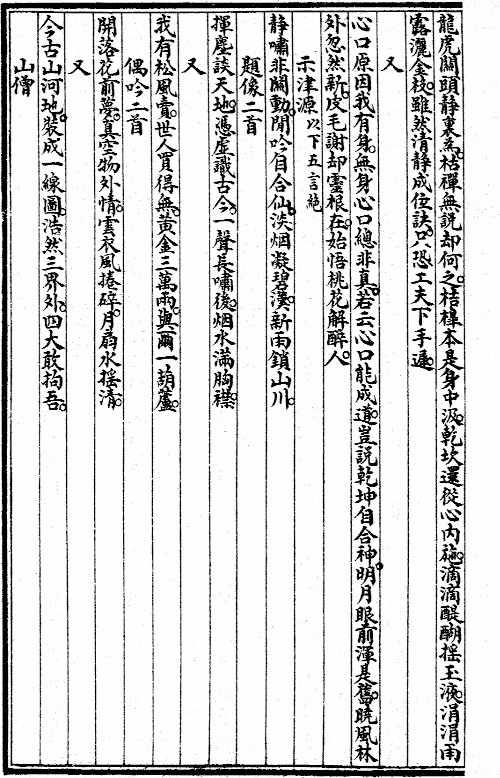 龍虎關頭靜裏為。枯禪無説却何之。桔槹本是身中汲。乾坎還從心内施。滴滴醍醐搖玉液。涓涓雨
露灑金枝。雖然清静成位訣。只恐工夫下手遲。
又
心口原因我有身。無身心口總非真。若云心口能成道。豈説乾坤自合神。明月眼前渾是舊。曉風林
外忽然新。皮毛謝却靈根在。始悟桃花解醉人。
示津源以下五言絶
静嘯非關動。閒吟自合仙。淡烟凝碧漢。新雨鎖山川。
題像二首
揮麈談天地。憑虚識古今。一聲長嘯後。烟水滿胸襟。
又
我有松風賣。世人買得無。黄金三萬兩。與爾一葫蘆。
偶吟二首
開落花前夢。真空物外情。雲衣風捲碎。月扇水摇清。
又
今古山河地。裝成一線圖。浩然三界外。四大敢拘吾。
山僧